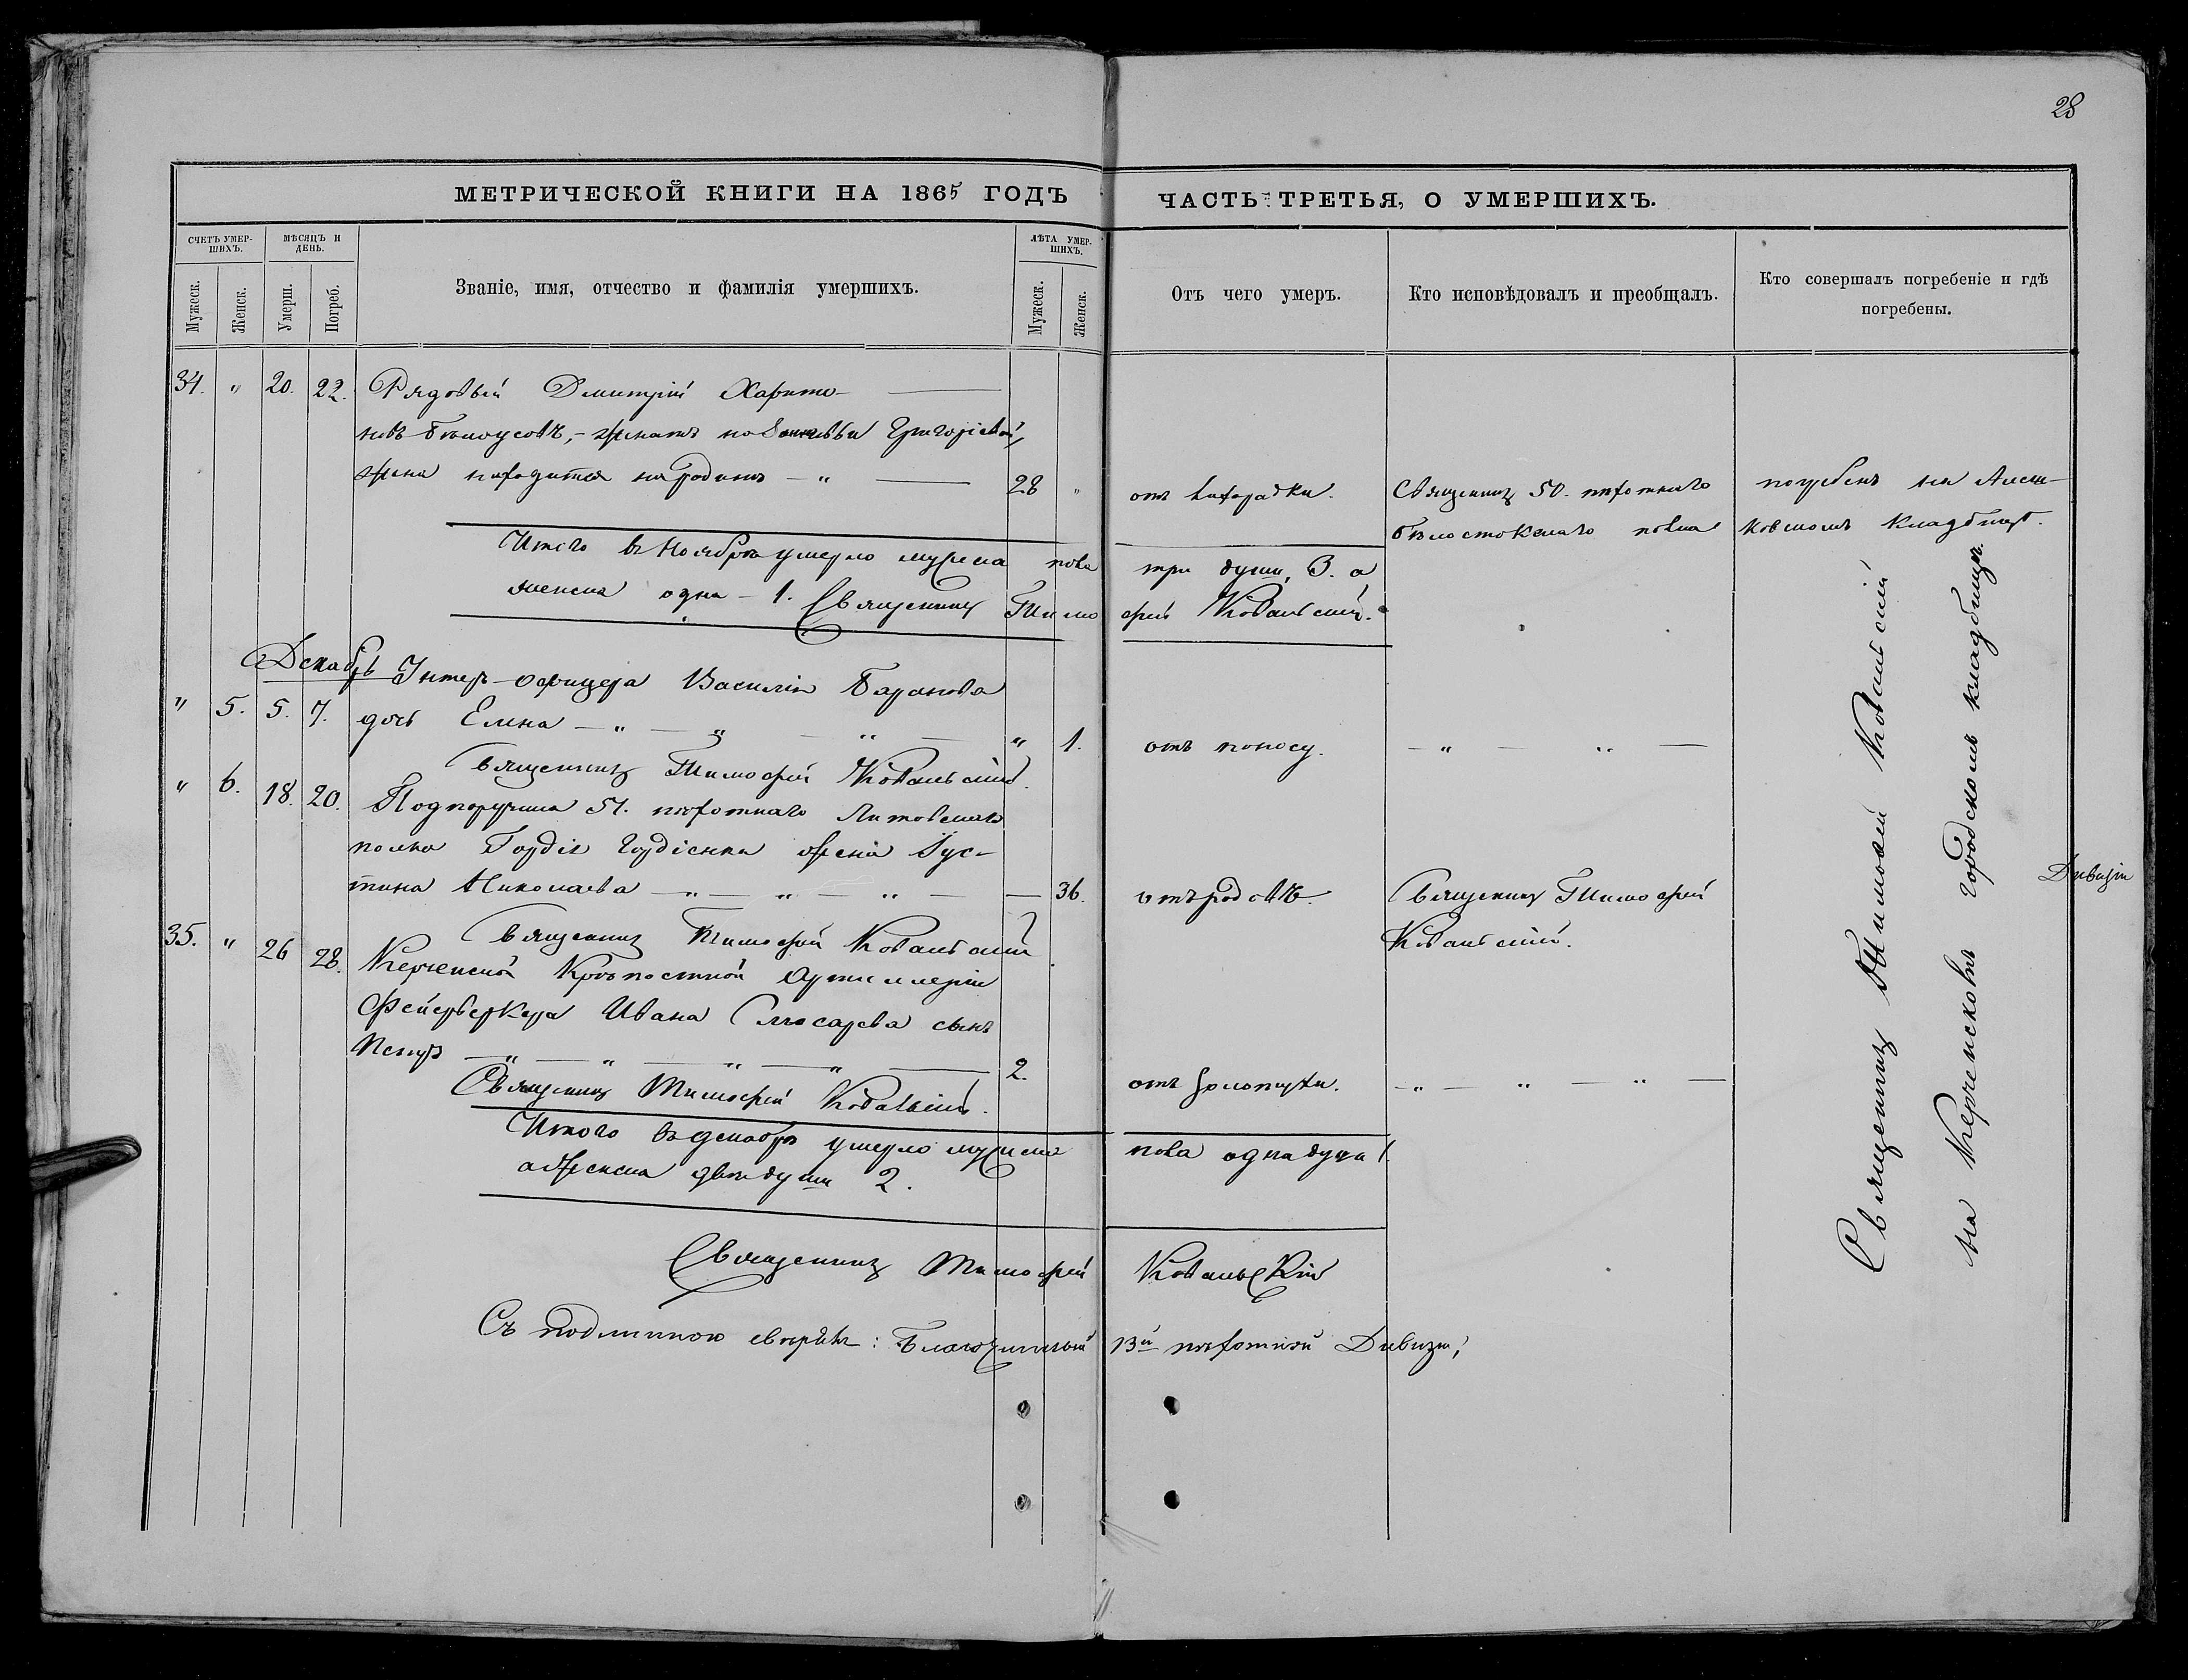 28
МЕТРИЧЕСКОЙ КНИГИ НА 1865 ГОДЪ
ЧАСТЬ ТРЕТЬЯ, О УМЕРШИХЪ.
СЧЕТЪ УМЕР-
ШИХЪ.
МѢСЯЦЪ И
ДЕНЬ.
Званіе, имя, отчество и фамилія умершихъ.
ЛѢТА УМЕР-
ШИХЪ.
Мужеск.
Женск.
Умерш.
Погреб.
Мужеск.
Женск.
Отъ чего умеръ.
Кто исповѣдовалъ и преобщалъ.
Кто совершалъ погребеніе и гдѣ
погребены.
34. " 20. 22. Рядовый Дмитрій Харито-
новъ Бѣлоусовъ,- женатъ на Григорьевой,
жена находится на родинѣ - " 28 " отъ лихорадки. Священникъ 50. пѣхотнаго погребенъ на
Бѣлостокскаго полка кладбищѣ.
Итого въ Ноябрѣ умерло мужеска пола три души, 3. а
женска одна - 1. Священникъ Тимофей Ковальскій.
Декабрь
Унтеръ-офицера Василія Баранова
" 5. 5. 7. дочь Елена - " - " - " - " 1. отъ поносу. - " - " -
Священникъ Тимофей Ковальскій.
" 6. 18. 20. Подпоручика 51. пѣхотнаго Литовскаго
полка Гордія Гордіенки жена Іус-
тина Николаева - " - " - " - 36. отъ родовъ. Священникъ Тимофей
Ковальскій.
Священникъ Тимофей Ковальскій
35. " 26 28. Керченской Крѣпостной Артиллеріи
Фейерверкера Ивана Слюсарева сынъ
Петръ - " - " - " - " - 2. отъ золотухи. - " - " - " -
Священникъ Тимофей Ковальскій.
Итого въ декабрѣ умерло мужеска пола одна душа 1.
а женска двѣ души 2.
Священникъ Тимофей Ковальскій
Съ подлинною свѣрялъ: Благочинный 13й пѣхотной Дивизіи,
Священникъ Тимофей Ковальскій
на Керченсковъ городскомъ кладбищѣ.
Дивизіи